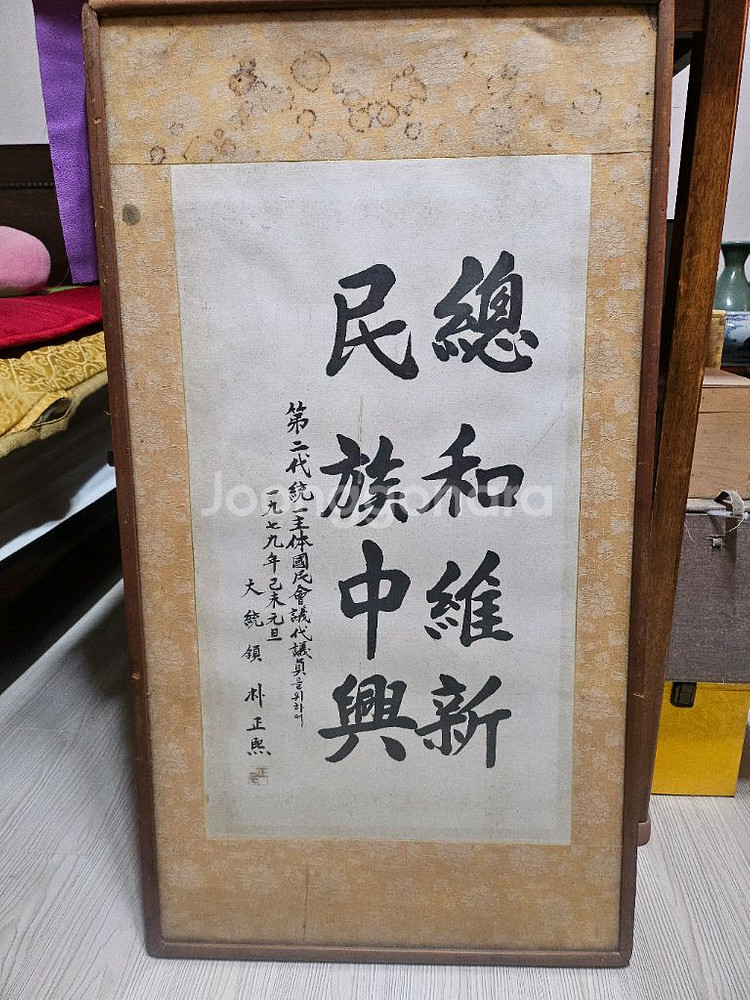 總和維新
民族中興
第二代統一主体國民會議代議員을위하여
一九七九年 己未元旦
大統領 朴正熙
Joonggonara